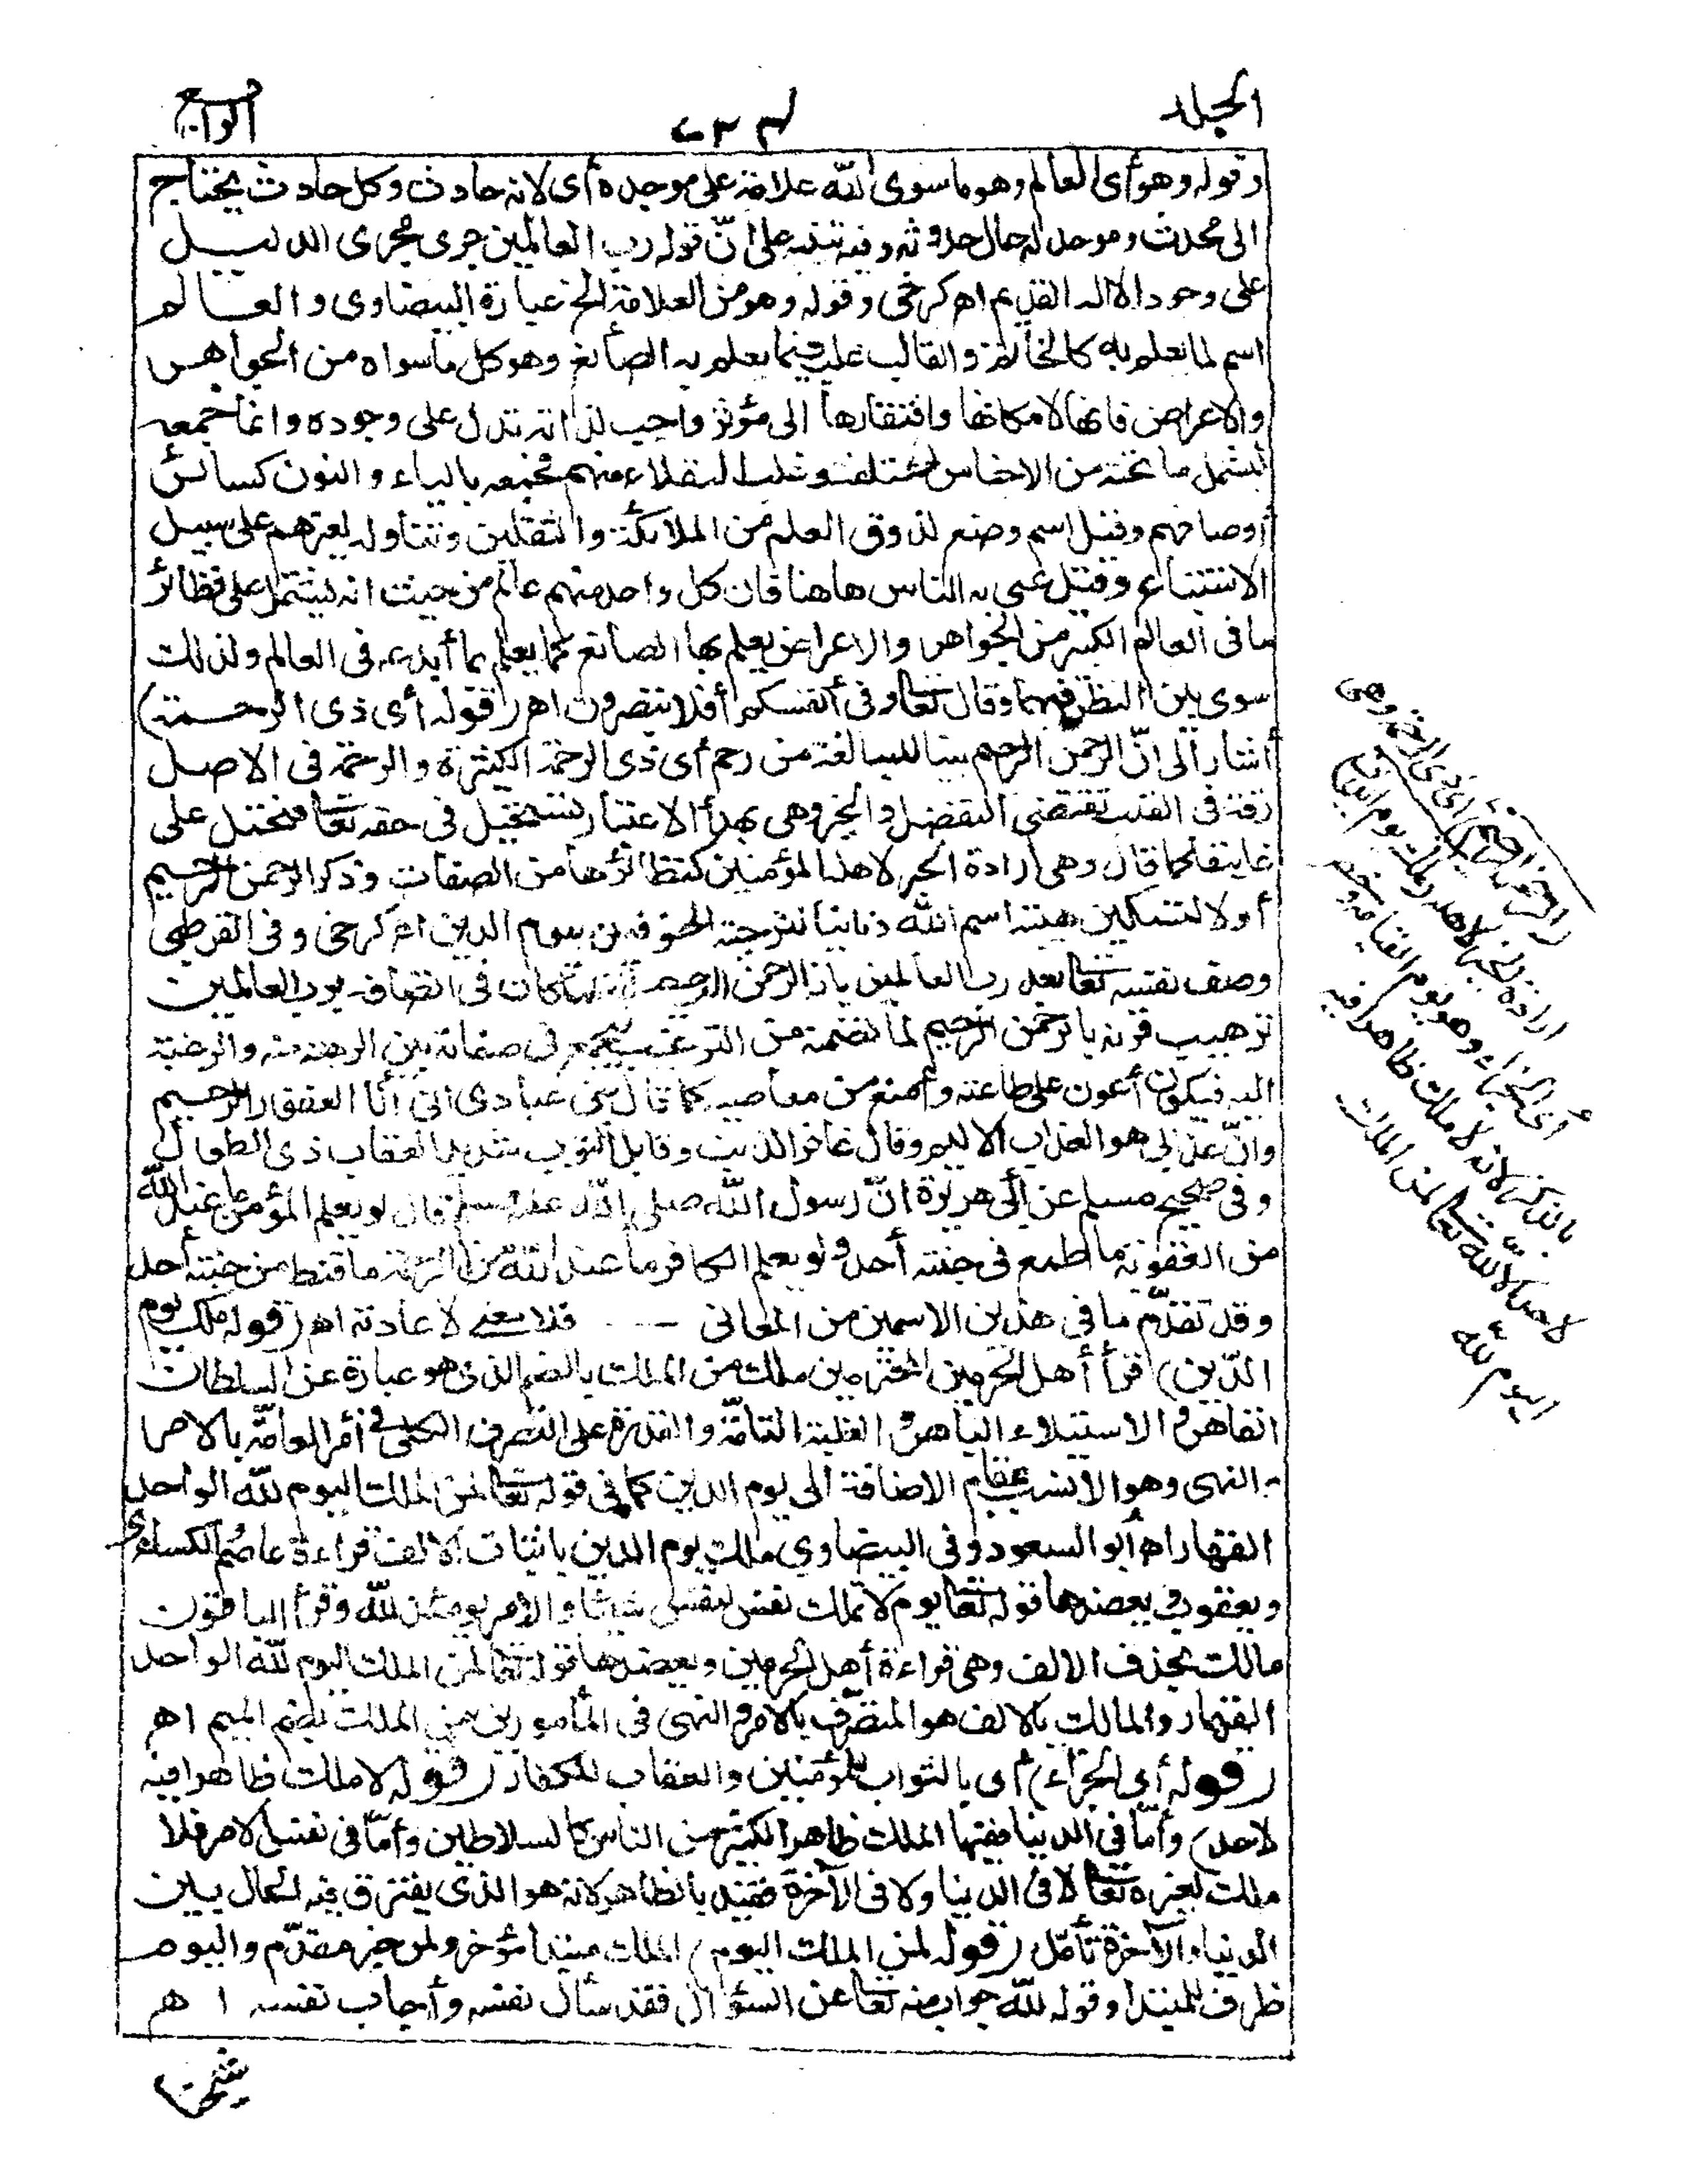 المجلد
الرابع
وقوله وهو أى العالم وهو ما سوى الله علامة على موجده أى لانه حادث وكل حادث يحتاج
الى محدث وموجد له حال حدوثه وفيه تنبيه على انّ قوله رب العالمين جرى مجرى الدليل
على وجود الاله القديم اهـ كرخى وقوله وهو من العلامة الخ عبارة البيضاوى والعالم
اسم لما يعلم به كالخاتم والقالب غلب فيما يعلم به الصانع وهو كل ما سواه من الجواهر
والاعراض فانها لامكانها وافتقارها الى مؤثر واجب لذاته تدل على وجوده وانما جمعه
ليشمل ما تحته من الاجناس المختلفة وغلب العقلاء منهم فجمعه بالياء والنون كسائر
أوصافهم وقيل اسم وضع لذوى العلم من الملائكة والثقلين وتناوله لغيرهم على سبيل
الاستتباع وقيل عنى به الناس هاهنا فان كل واحد منهم عالم من حيث انه يشتمل على نظائر
ما فى العالم الكبير من الجواهر والاعراض يعلم بها الصانع كما يعلم بما أبدعه فى العالم ولذلك
سوى بين النظر فيهما وقال تعالى وفى أنفسكم أفلا تبصرون اهـ (قوله أى ذى الرحمة)
أشار الى انّ الرحمن الرحيم بنيا للمبالغة من رحم أى ذى الرحمة الكثيرة والرحمة فى الاصل
رقة فى القلب تقتضى التفضل والخير وهى بهذا الاعتبار تستحيل فى حقه تعالى فتحمل على
غايتها كما قال وهى ارادة الخير لاهلها المؤمنين كنظائرها من الصفات وذكر الرحمن الرحيم
أولا لتسكين هيبة اسم الله وثانيا لترجية الخوف من يوم الدين اهـ كرخى وفى القرطبى
وصف نفسه تعالى بعد رب العالمين بانه الرحمن الرحيم لانه لما كان فى اتصافه برب العالمين
ترهيب قرنه بالرحمن الرحيم لما تضمنه من الترغيب ليجمع فى صفاته بين الرهبة منه والرغبة
اليه فيكون أعون على طاعته وأمنع من معاصيه كما قال نبئ عبادى انى أنا الغفور الرحيم
وانّ عذابى هو العذاب الاليم وقال غافر الذنب وقابل التوب شديد العقاب ذى الطول
وفى صحيح مسلم عن أبى هريرة انّ رسول الله صلى الله عليه وسلم قال لو يعلم المؤمن ما عند الله
من العقوبة ما طمع فى جنته أحد ولو يعلم الكافر ما عند الله من الرحمة ما قنط من جنته أحد
وقد تقدّم ما فى هذين الاسمين من المعانى فلا معنى لاعادته اهـ (قوله ملك يوم
الدّين) قرأ أهل الحرمين المحترمين ملك من الملك بالضم الذى هو عبارة عن السلطان
القاهر والاستيلاء الباهر والغلبة التامّة والقدرة على التصرف الكلى فى أمر العامّة بالامر
والنهى وهو الانسب بمقام الاضافة الى يوم الدين كما فى قوله تعالى لمن الملك اليوم لله الواحد
القهار اهـ أبو السعود وفى البيضاوى مالك يوم الدين باثبات الالف قراءة عاصم والكسائى
ويعقوب ويعضدها قوله تعالى يوم لا تملك نفس لنفس شيئا والامر يومئذ لله وقرأ الباقون
مالك بحذف الالف وهى قراءة أهل الحرمين ويعضدها قوله تعالى لمن الملك اليوم لله الواحد
القهار والمالك بالالف هو المتصرّف بالامر والنهى فى المأمورين من الملك بضم الميم اهـ
(قوله أى الجزاء) أى بالثواب للمؤمنين والعقاب للكفار (قوله لا ملك ظاهرا فيه
لاحد) وأمّا فى الدنيا ففيها الملك ظاهرا لكثير من الناس كالسلاطين وأمّا فى نفس الامر فلا
ملك لغيره تعالى لا فى الدنيا ولا فى الآخرة فقيد بالظاهر لانه هو الذى يفترق فيه الحال بين
الدنيا والآخرة تأمّل (قوله لمن الملك اليوم) الملك مبتدأ مؤخر ولمن خبر مقدّم واليوم
ظرف للمبتدأ وقوله لله جواب منه تعالى عن السؤال فقد سأل نفسه وأجاب نفسه اهـ
شيخنا
(الرحمن الرحيم) أى ذى الرحمة وهى
ارادة الخير لاهله (ملك يوم الدين)
أى الجزاء وهو يوم القيامة وخص
بالذكر لانه لا ملك ظاهرا فيه
لاحد الا لله تعالى لمن الملك
اليوم لله